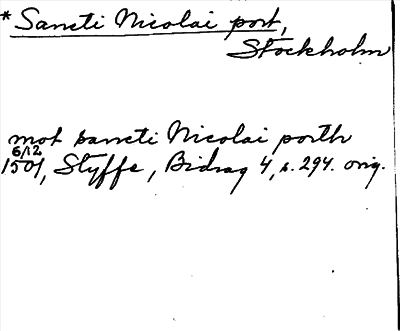 * Sancti Nicolai port,
Stockholm
mot sancti Nicolai porth
6/12
1501, Styffe, Bidrag 4, s. 294. orig.